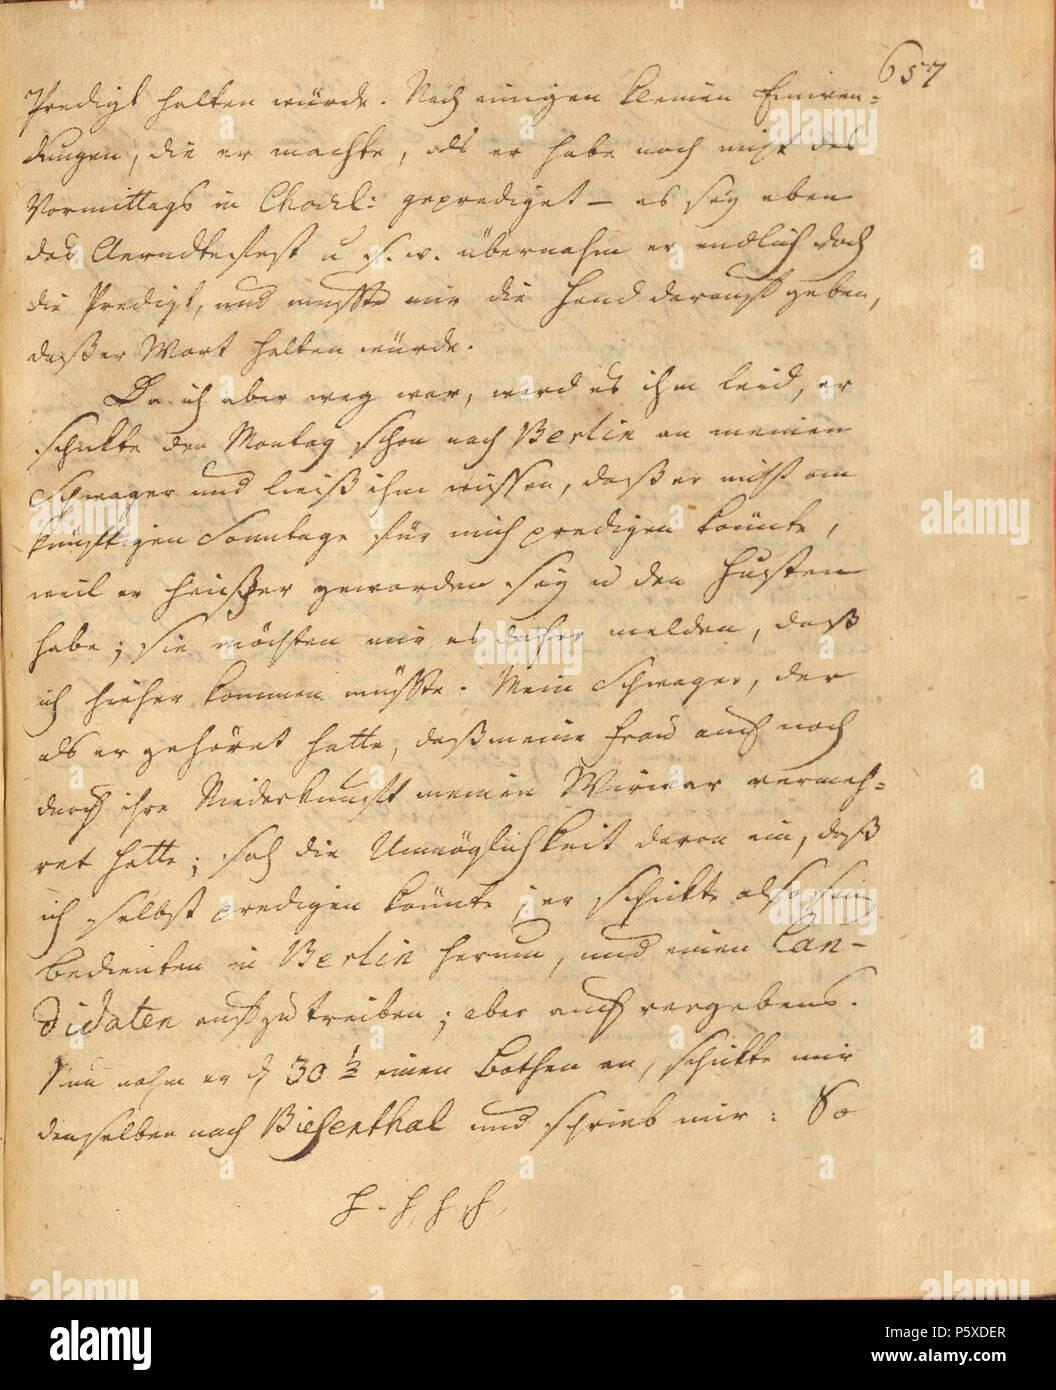 657
Predigt halten würde. Nach einigen kleinen Einwen=
dungen, die er machte, als er habe noch nicht des
Vormittags in Charl: geprediget – es sey eben
das Aerndtefest u s. w. übernahm er endlich doch
die Predigt, und musste mir die Hand darauf geben,
daß er Wort halten würde.
Da ich aber weg war, ward es ihm leid, er
schickte den Montag schon nach Berlin an meinen
Schwager und ließ ihm wissen, daß er nicht am
künftigen Sonntage für mich predigen könnte,
weil er heißer geworden sey u den Husten
habe; sie möchten mir es daher melden, daß
ich hieher kommen müßte. Mein Schwager, der
als er gehöret hatte, daß meine Frau auch noch
durch ihre Niederkunft meinen Wirwar vermeh=
ret hatte; sah die Unmöglichkeit davon ein, daß
ich selbst predigen könnte; er schickte also sein
Bedienten in Berlin herum, und einen Can-
didaten aufzutreiben; aber auch vergebens.
Nun nahm er 30 ½ einen Bothen an, schickte mir
denselben nach Biesenthal und schrieb mir: So
alamy
Image ID: P5XDER
www.alamy.com